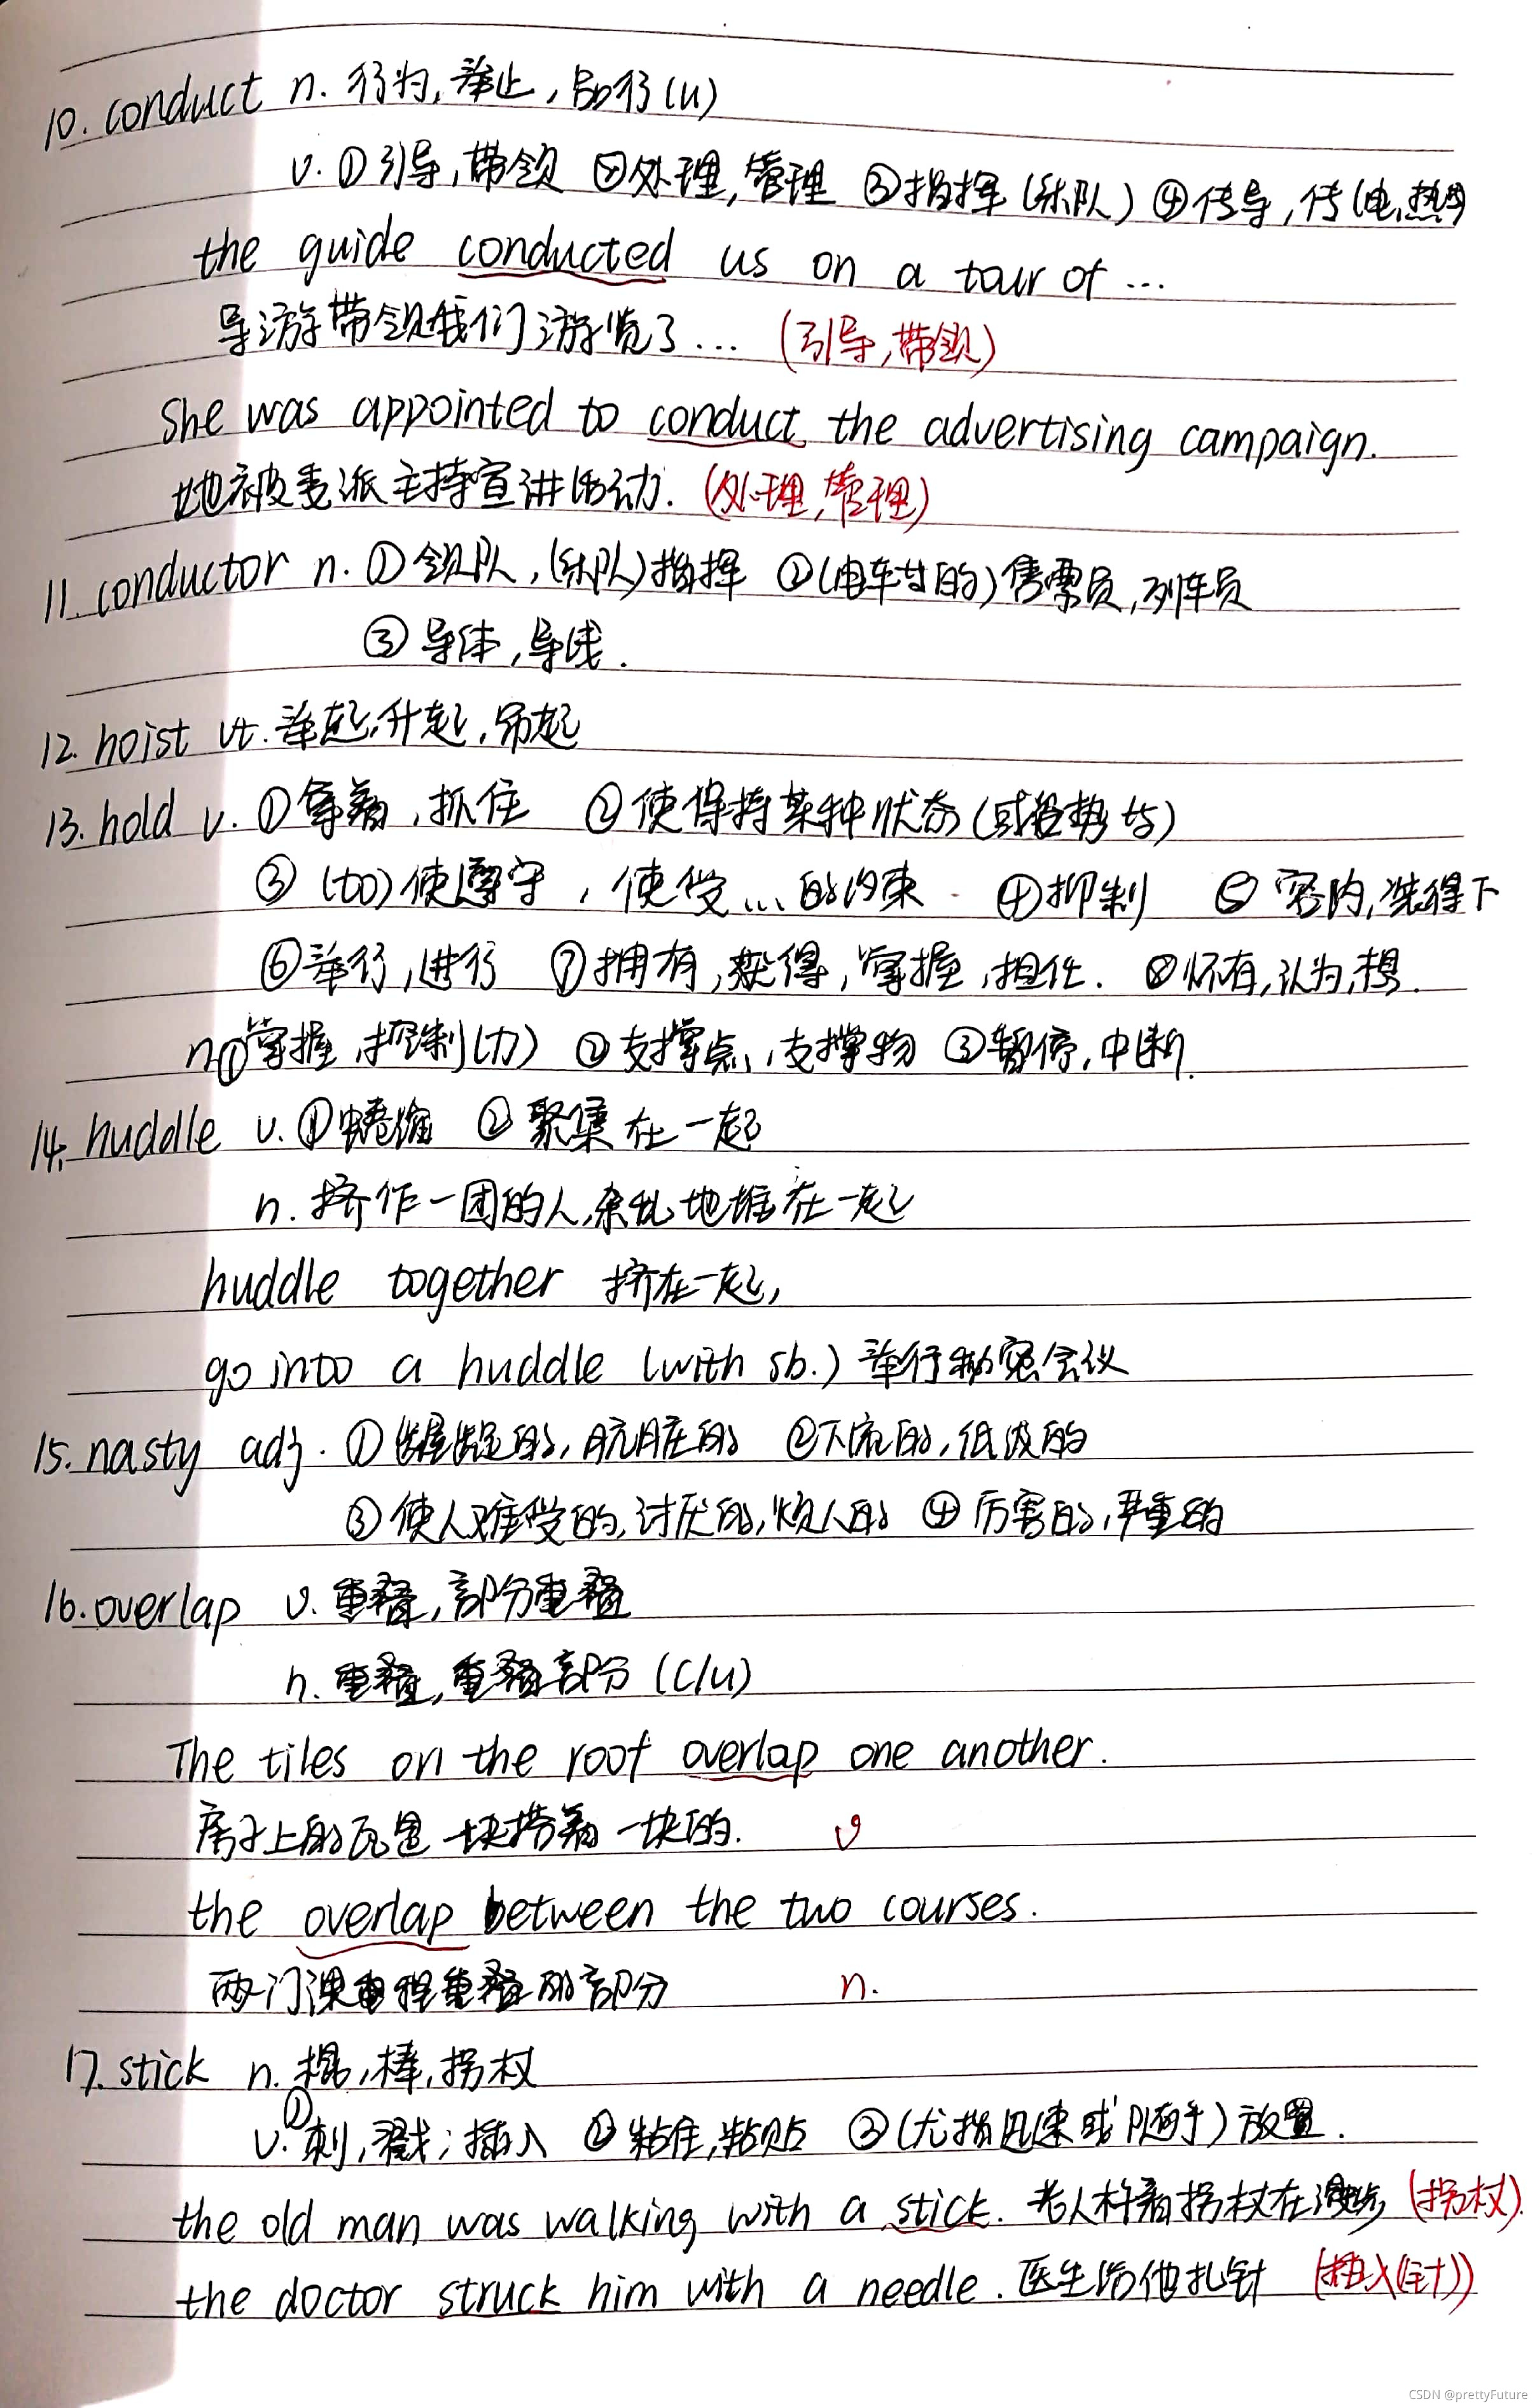 10. conduct n. 行为, 举止, 品行(u)
v. ①引导, 带领 ②处理, 管理 ③指挥(乐队) ④传导, 传(电,热)
the guide conducted us on a tour of ...
导游带领我们游览了... (引导,带领)
She was appointed to conduct the advertising campaign.
她被委派主持宣讲活动. (处理,管理)
11. conductor n. ①领队, (乐队)指挥 ②(电车等的)售票员,列车员
③导体,导线.
12. hoist vt. 举起,升起,吊起
13. hold v. ①拿着,抓住 ②使保持某种状态(或姿势等)
③(to)使遵守, 使受...的约束 ④抑制 ⑤容内,装得下
⑥举行,进行 ⑦拥有,获得,掌握,担任. ⑧怀有,认为,想.
n①掌握,控制(力) ②支撑点,支撑物 ③暂停,中断.
14. huddle v. ①蜷缩 ②聚集在一起
n. 挤作一团的人,杂乱地堆在一起
huddle together 挤在一起,
go into a huddle (with sb.) 举行秘密会议
15. nasty adj. ①龌龊的,肮脏的 ②下流的,低级的
③使人难受的,讨厌的,烦人的 ④厉害的,严重的
16. overlap v. 重叠,部分重叠
n. 重叠,重叠部分 (C/U)
The tiles on the roof overlap one another.
房子上的瓦是一块搭着一块的. v
the overlap between the two courses.
两门课程重叠的部分 n.
17. stick n. 棍,棒,拐杖
v. ①刺,戳;插入 ②粘住,粘贴 ③(尤指迅速或随手)放置.
the old man was walking with a stick. 老人拄着拐杖在漫步 (拐杖).
the doctor struck him with a needle. 医生给他扎针 (插入(针))
CSDN @prettyFuture